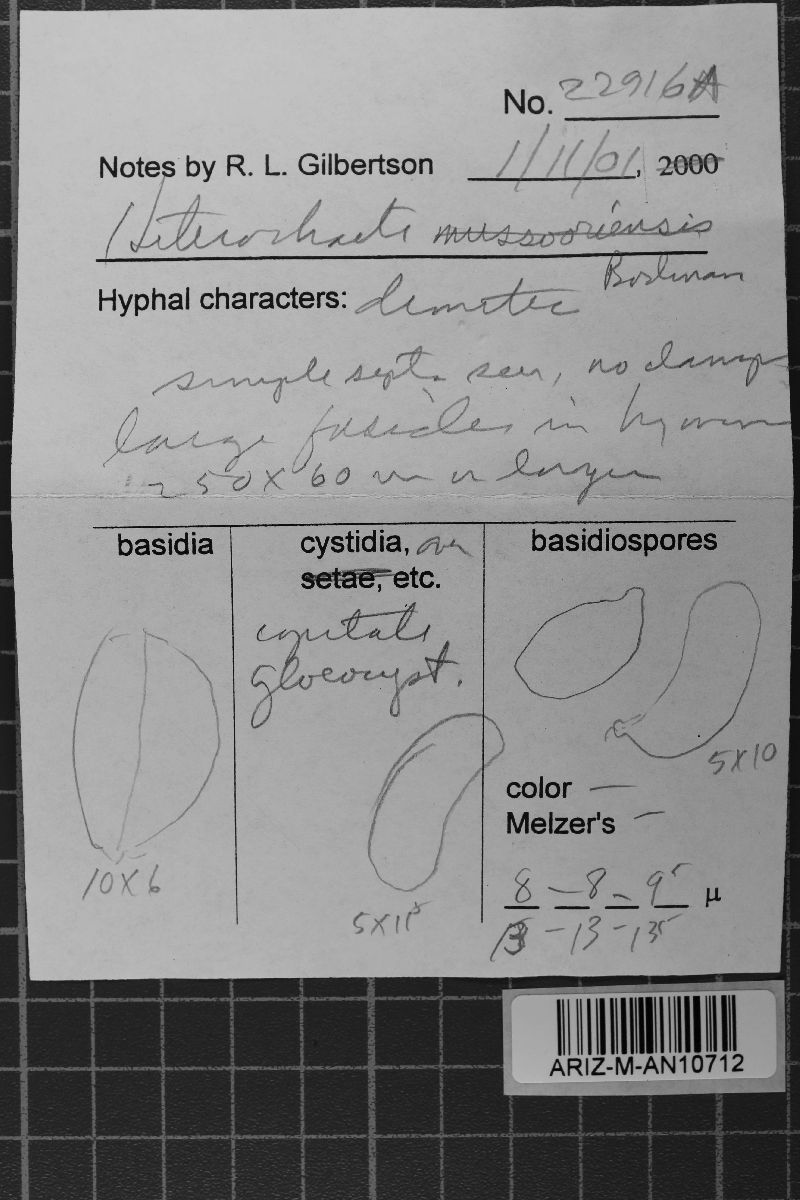 No. 22916A
Notes by R. L. Gilbertson 1/11/01, 2000
Heterochaete mussooriensis
Bodman
Hyphal characters: dimitic
simple septa seen, no clamps
large fasicles in hymen
250 X 60 um or larger
basidia
cystidia,
setae, etc.
basidiospores
capitate
gloeocyst.
5 X 10
color —
Melzer's —
10 X 6
8 — 8 – 9⁵ μ
5 X 11⁵
13 – 13 – 13⁵
ARIZ-M-AN10712